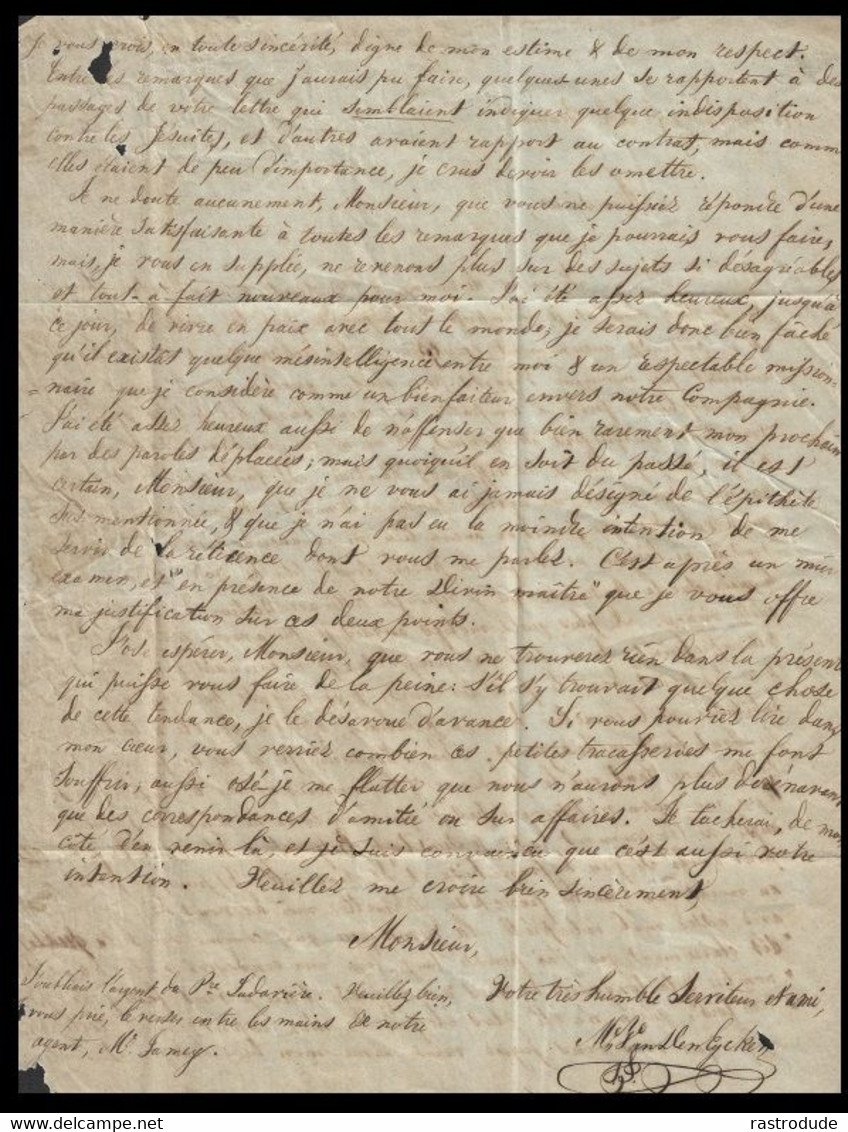 Je vous crois, en toute sincérité, digne de mon estime & de mon respect.
Entre les remarques que j'aurais pu faire, quelques-unes se rapportent à des
passages de votre lettre qui semblaient indiquer quelque indisposition
contre les Jésuites, et d'autres avaient rapport au contrat, mais comm
elles étaient de peu d'importance, je crus devoir les omettre.
Je ne doute aucunement, Monsieur, que vous ne puissiez répondre d'une
manière satisfaisante à toutes les remarques que je pourrais vous faire,
mais, je vous en supplie, ne revenons plus sur des sujets si désagréables
et tout-à-fait nouveaux pour moi. J'ai été assez heureux, jusqu'à
ce jour, de vivre en paix avec tout le monde, je serais donc bien fâché
qu'il existât quelque mésintelligence entre moi & un respectable mission-
=naire que je considère comme un bienfaiteur envers notre Compagnie.
J'ai été assez heureux aussi de n'offenser que bien rarement mon prochain
par des paroles déplacées; mais quoiqu'il en soit du passé, il est
certain, Monsieur, que je ne vous ai jamais désigné de l'épithète
sus mentionnée, & que je n'ai pas eu la moindre intention de me
servir de la réticence dont vous me parlez. C'est après un mûr
examen, et "en présence de notre Divin maître" que je vous offre
ma justification sur ces deux points.
J'ose espérer, Monsieur, que vous ne trouverez rien dans la présent
qui puisse vous faire de la peine: s'il s'y trouvait quelque chose
de cette tendance, je le désavoue d'avance. Si vous pouviez lire dans
mon cœur, vous verriez combien ces petites tracasseries me font
souffrir; aussi osé-je me flatter que nous n'aurons plus dorénavant
que des correspondances d'amitié ou sur affaires. Je tacherai, de mon
côté d'en venir là, et je suis convaincu que c'est aussi votre
intention. Veuillez me croire bien sincèrement,
Monsieur,
Votre très humble Serviteur & ami,
J'oubliais l'argent du Pre Ladavière. Veuillez bien,
vous prie, le verser entre les mains de notre
agent, Mr. Jamey.
Mr. Van Den Eycken
S.J.
rastrodude